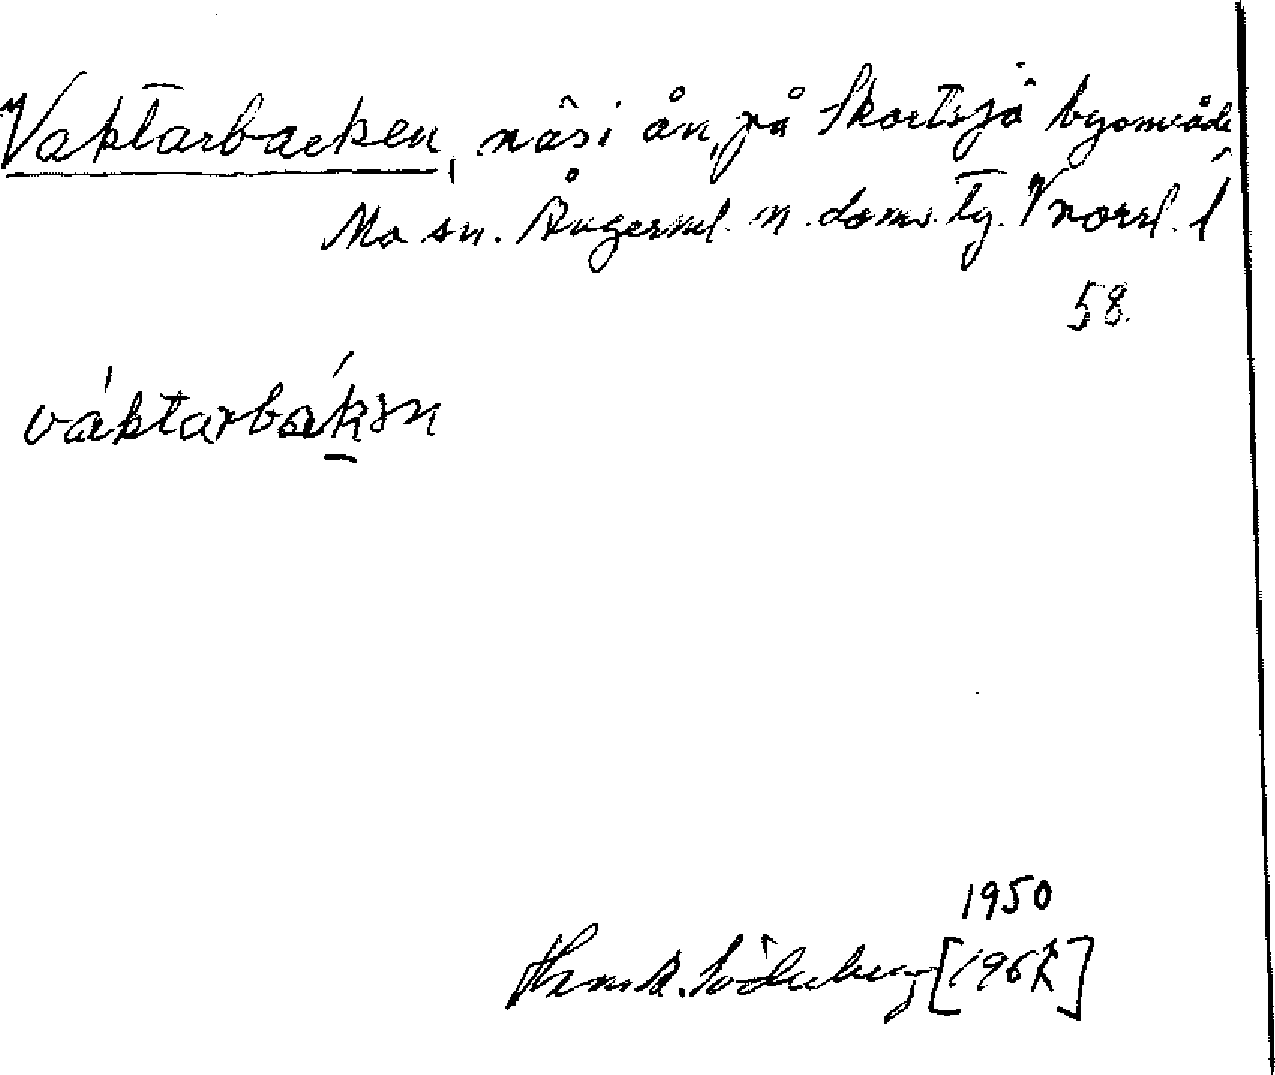 Vaktarbacken, näs i ån, på Skortsjö byområde
Mo sn. Ångerml. n. doms. Tg. Vnorrl. l
58.
váktarbákən
1950
Henrik Söderberg [1962]